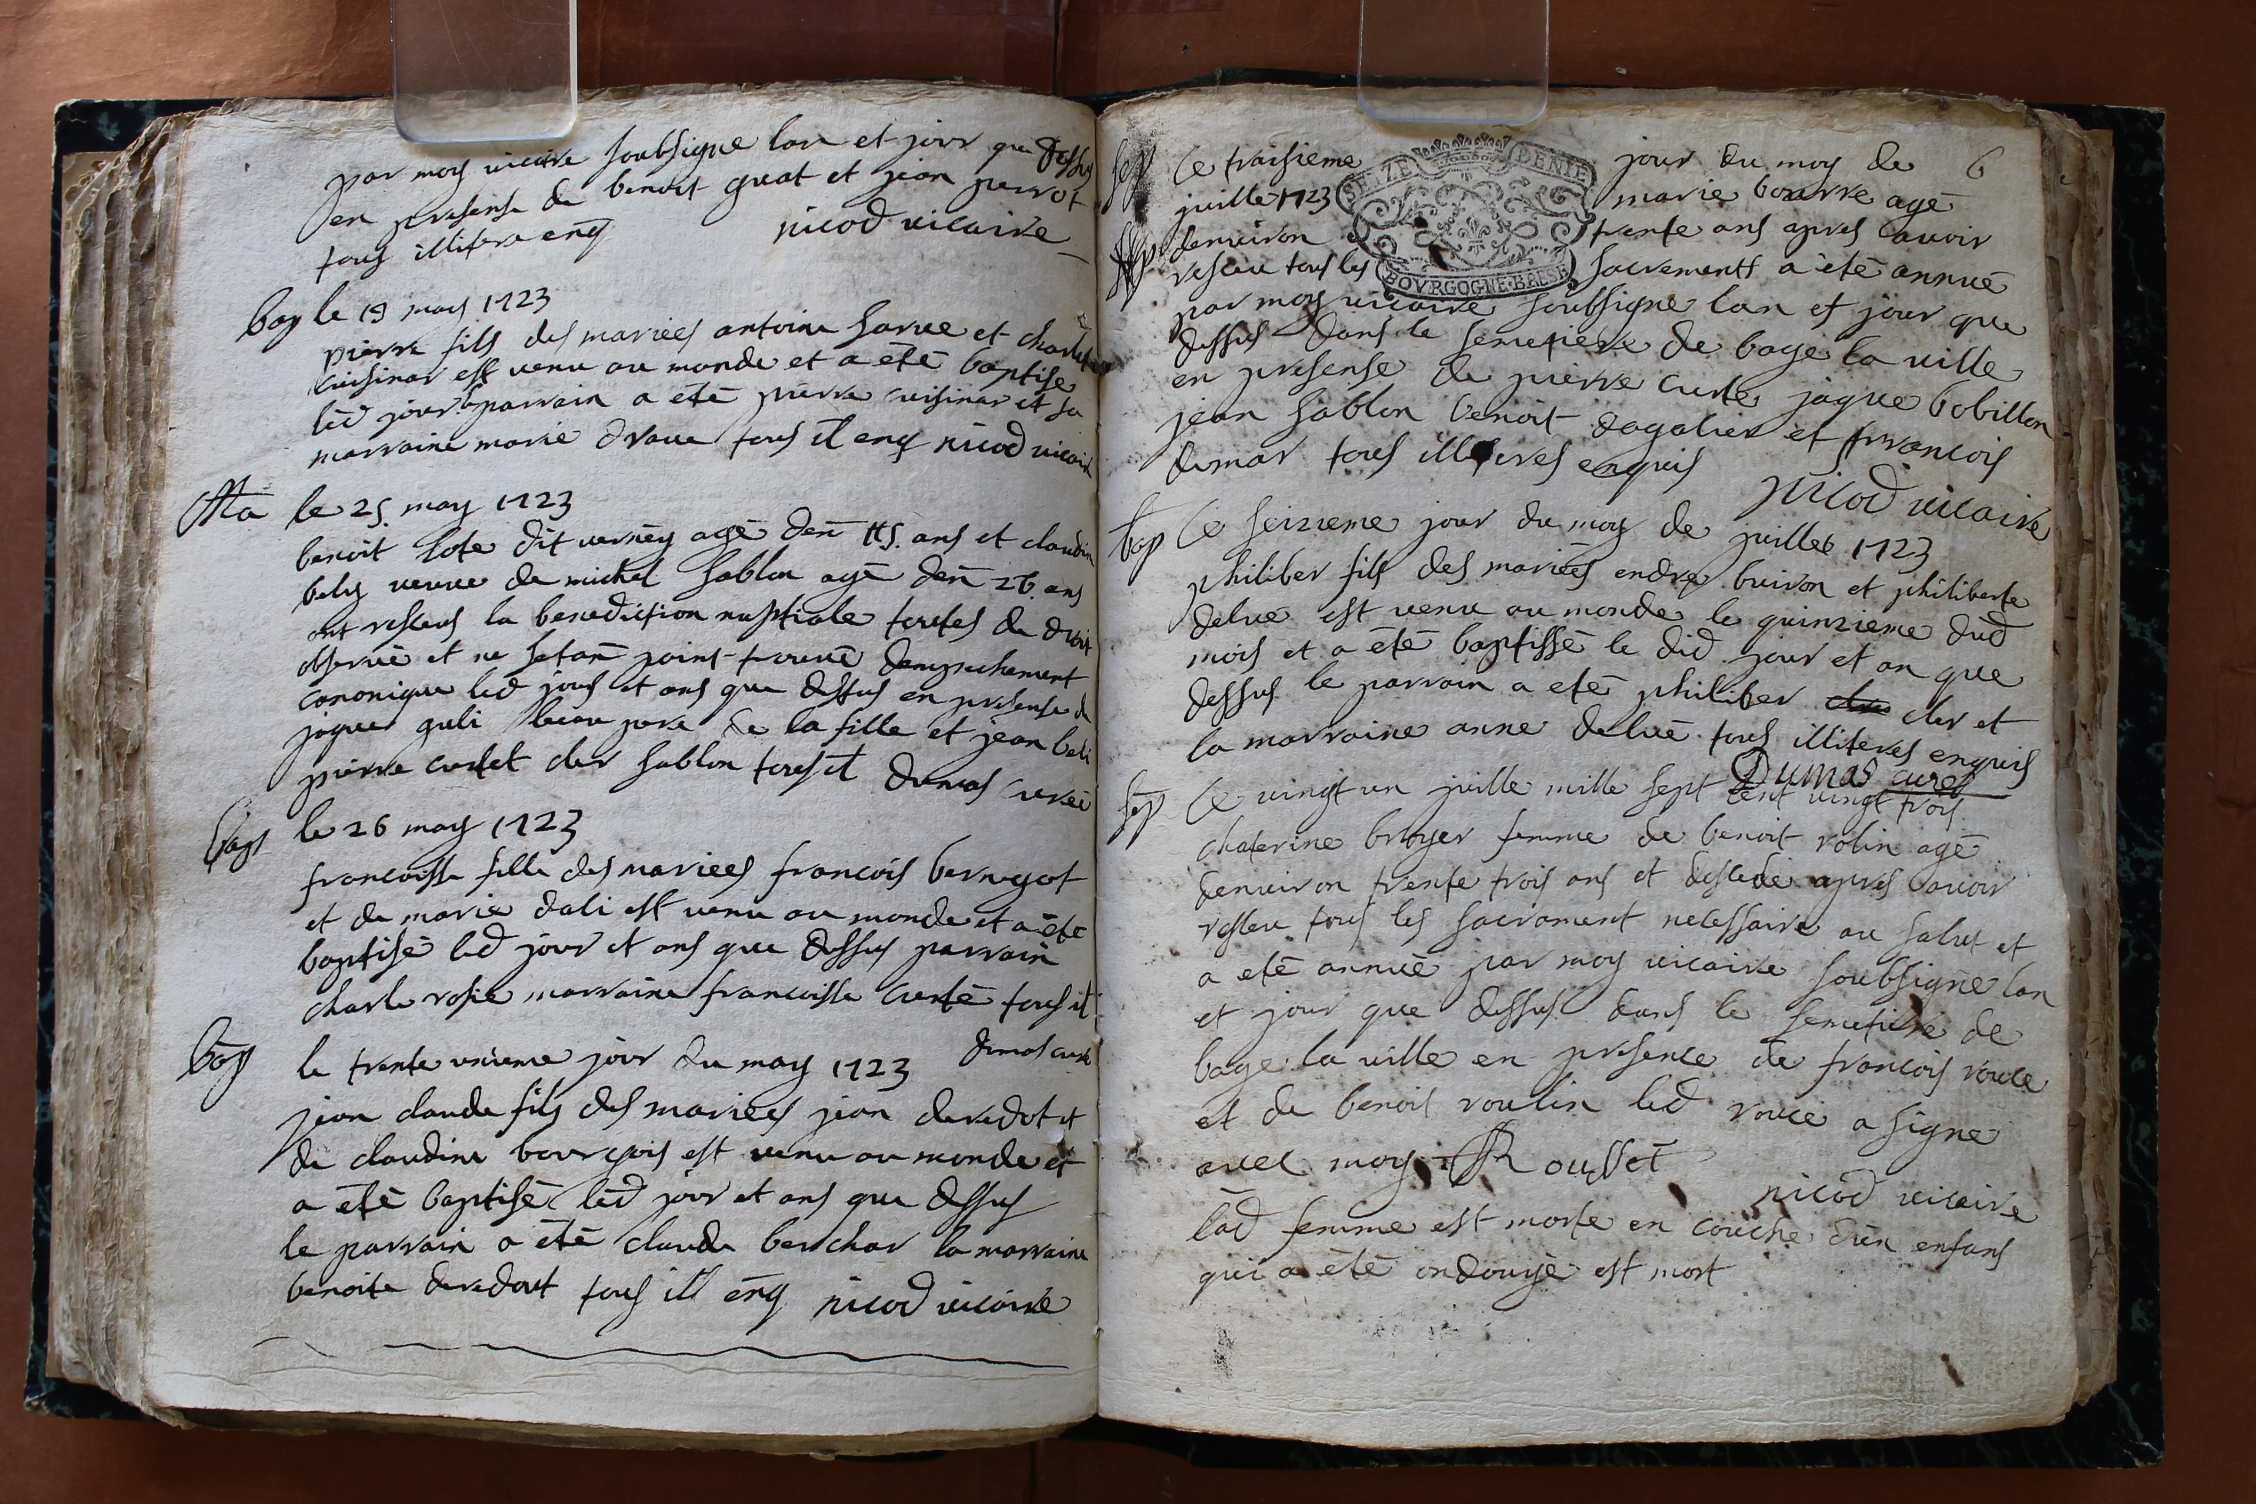 par moy vicaire soubsigne lan et jour que dessus
en presense de benoit guat et jean perrot
tous illitere enq nicod vicaire
bap le 19 may 1723
pierre fils des mariees antoine sarue et charlote
cuisinar est venu au monde et a été baptise
led jour parrain a eté pierre cuisinar et sa
marraine marie draue tous il enq nicod vicaire
Ma le 25. may 1723
benoit lote dit verney agé den ans et claudine
bely veuve de michel sablon agé den 26. ans
ont resceus la benediction nuptiale toutes de droit
observé et ne setant point trouvé dempechement
canonique led jour et ans que dessus en presense de
jaques guli beau pere de la fille et jean beli
pierre curtet cler sablon tous il dumas curée
bap le 26 may 1723
francoisse fille des mariees francois bernigot
et de marie dali est venu au monde et a été
baptisé led jour et ans que dessus parrain
charle rosie marraine francoisse curté tous il
dumas curé
bap le trente unieme jour du may 1723
jean claude fils des mariees jean deredot et
de claudine bourgois est venu au monde et
a été baptisé led jour et ans que dessus
le parrain a été claude berchar la marraine
benoite deredout tous ill enq nicod vicaire
6
sep Le traisieme jour du moy de
juille 1723 marie bourre agé
denviron trente ans apres lavoir
resceu tous les sacrements a été annué
SEIZE DENIE
BOVRGOGNE·BRESE
par moy vicaire soubsigne lan et jour que
dessus dans le semetiere de bage la ville
en presense de pierre curte jaque bobillon
jean sablon benoit dagalier et francois
dumar tous illiteres enquis
nicod vicaire
bap Le seizieme jour du moy de juillet 1723
philiber fils des mariées endre buiron et philiberte
delué est venu au monde le quinzieme dud
mois et a été baptissé le did jour et an que
dessus le parrain a eté philiber cler et
la marraine anne delué tous illiteres enquis
Dumas curé
sep Le vingt un juille mille sept cent vingt trois
chaterine broyer femme de benoit rolin agé
denviron trente trois ans et descedé apres lavoir
resceu tous les sacrament necessaire au salut et
a eté annué par moy vicaire soubsigné lan
et jour que dessus dans le semetiere de
bage la ville en presence de francois rouce
et de benoit roulin led rouce a signe
avec moy Rousset
nicod vicaire
lad femme est morte en couche dun enfans
qui a été ondouyé est mort